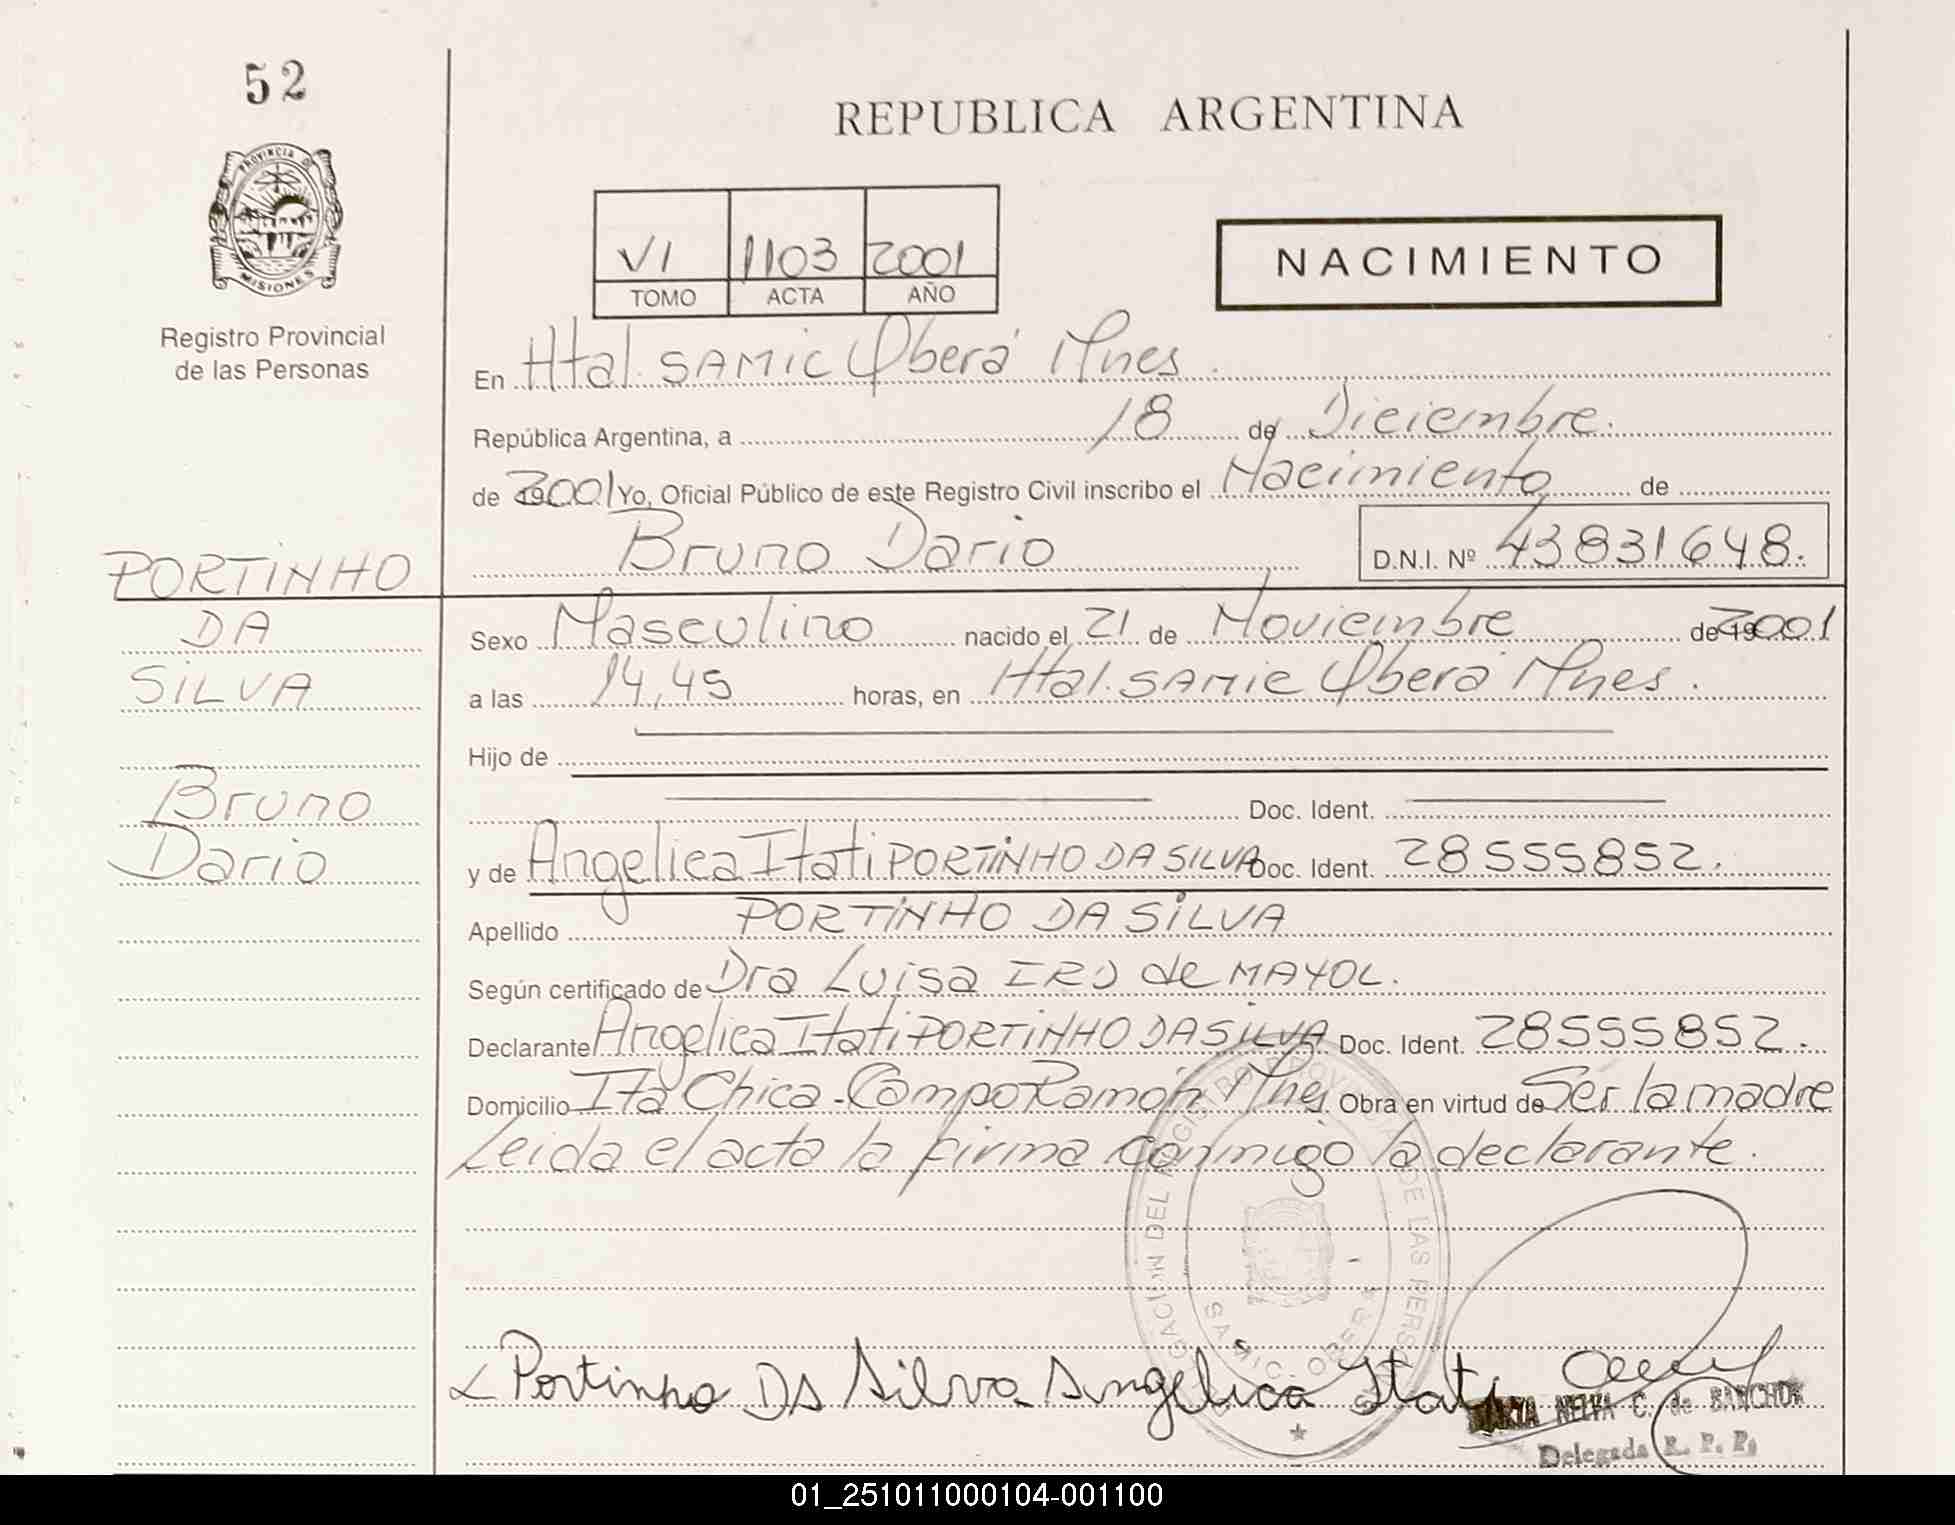 52
REPUBLICA ARGENTINA
PROVINCIA D
MISIONES
Registro Provincial
de las Personas
VI 1103 2001
TOMO ACTA AÑO
NACIMIENTO
En Htal. SAMIC Oberá Mnes
República Argentina, a 18 de Diciembre.
de 2001 Yo, Oficial Público de este Registro Civil inscribo el Nacimiento de
Bruno Dario D.N.I. Nº 43831648.
PORTINHO
DA
SILVA
Bruno
Dario
Sexo Masculino nacido el 21 de Noviembre de 2001
a las 14,45 horas, en Htal. SAMIC Oberá Mnes.
Hijo de
Doc. Ident.
y de Angelica Itati PORTINHO DA SILVA Doc. Ident. 28555852.
Apellido PORTINHO DA SILVA
Según certificado de Dra Luisa IRO de MAYOL.
Declarante Angelica Itati PORTINHO DA SILVA Doc. Ident. 28555852.
Domicilio Ita Chica - Campo Ramón Mnes Obra en virtud de Ser la madre
Leida el acta la firma conmigo la declarante.
Portinho Da Silva Angelica Itati
NELFA C. de BANCHUK
Delegada R. P. P.
01_251011000104-001100